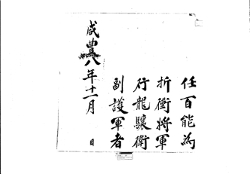 任百能為
折衝將軍
行龍驤衛
副護軍者
咸豊八年十一月 日